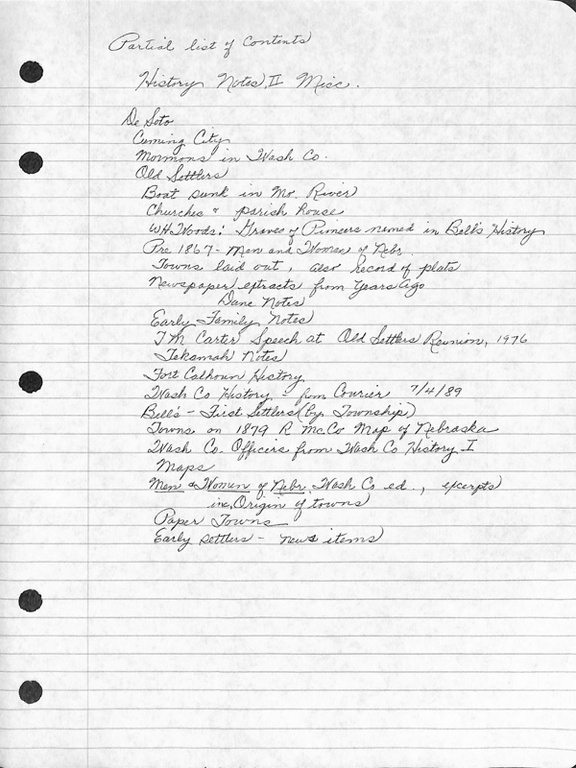 Partial list of Contents
History Notes, II Misc.
De Soto
Cuming City
Mormons in Wash Co.
Old Settlers
Boat sunk in Mo. River
Churches & parish house
WH Woods: Graves of Pioneers named in Bell's History
Pre 1867 - Men and Women of Nebr.
Towns laid out, also record of plats
Newspaper extracts from Years Ago
Dane Notes
Early Family Notes
T M Carter Speech at Old Settlers Reunion, 1976
Tekamah Notes
Fort Calhoun History
Wash Co History - from Courier 7/4/89
Bell's - First Settlers (by Township)
Towns on 1879 R McCo Map of Nebraska
Wash Co. Officers from Wash Co History I
Maps
Men & Women of Nebr. Wash Co ed., excerpts
inc. Origin of towns
Paper Towns
Early settlers - news items